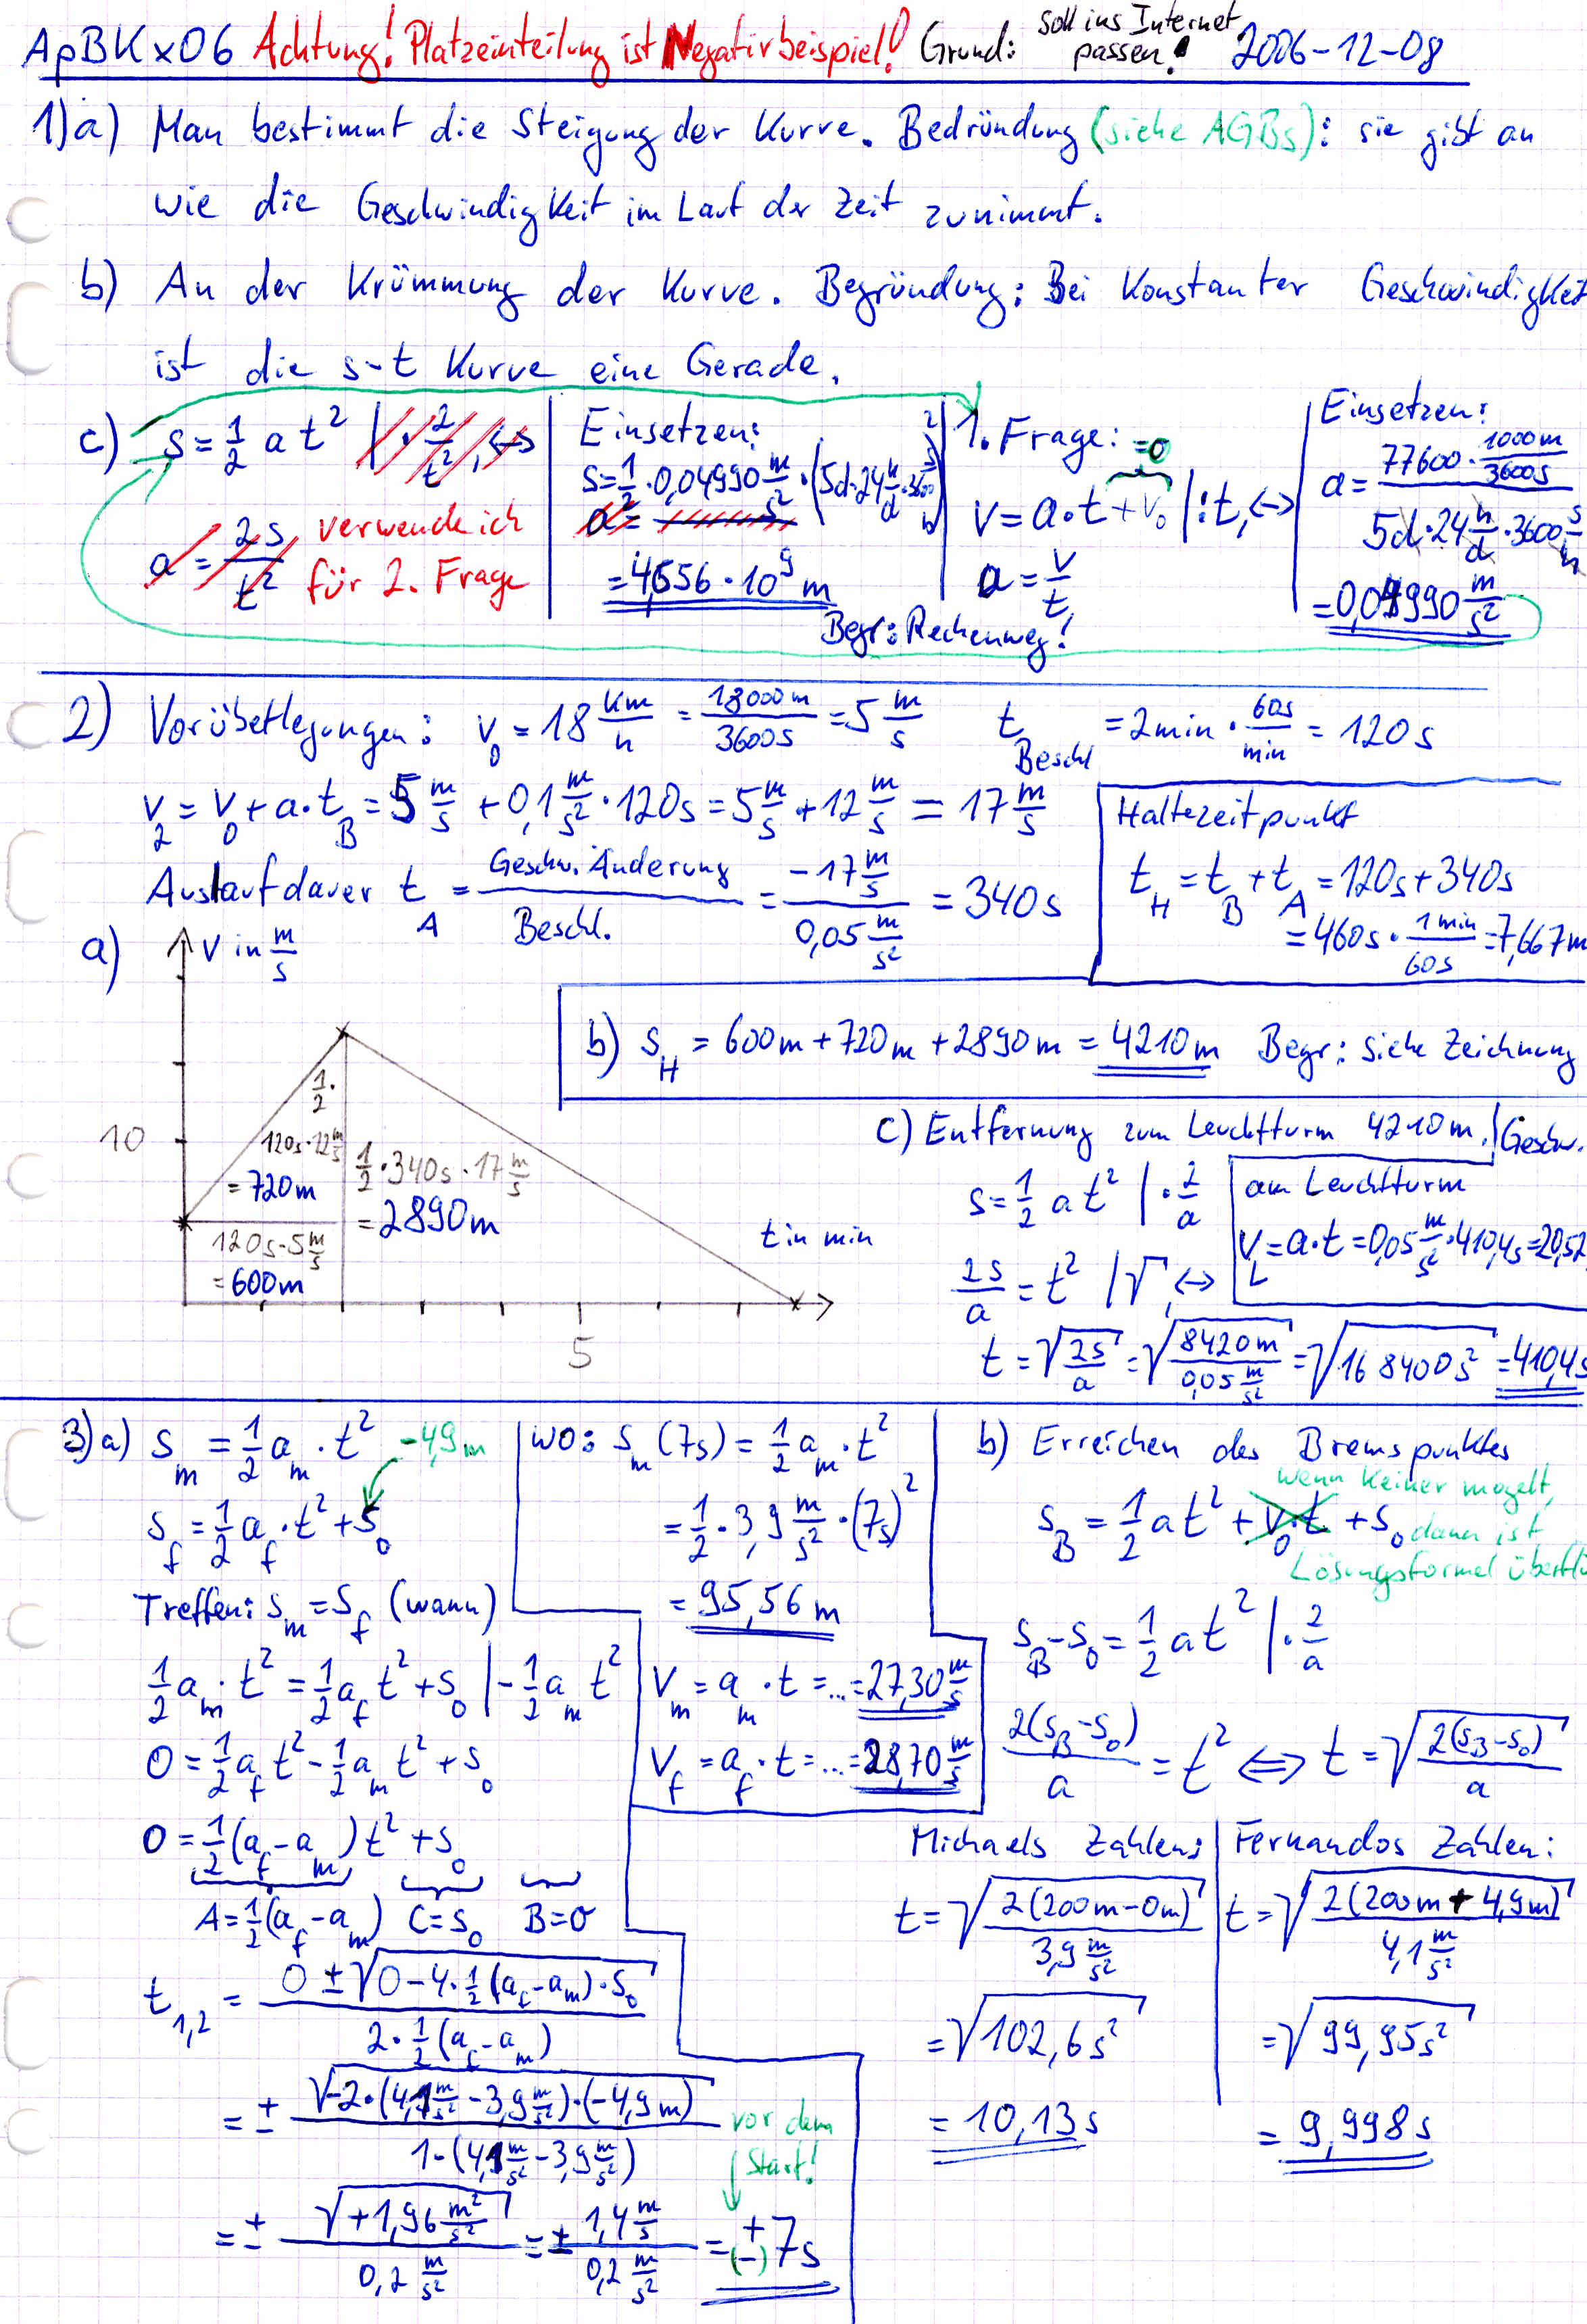 ApBKx06 Achtung! Platzeinteilung ist Negativbeispiel! Grund: soll ins Internet passen! 2006-12-08
1)a) Man bestimmt die Steigung der Kurve. Bedründung (siehe AGBs): sie gibt an
wie die Geschwindigkeit im Lauf der Zeit zunimmt.
b) An der Krümmung der Kurve. Begründung: Bei Konstanter Geschwindigkeit
ist die s-t Kurve eine Gerade.
c) s = 1/2 a t² | · 2/t², ↔
a = 2s/t² verwende ich
für 2. Frage
Einsetzen:
s = 1/2 · 0,04990 m/s² · (5d · 24 h/d · 3600 s/h)²
= 4,656 · 10⁹ m
1. Frage: =0
v = a · t + v₀ | :t, ↔
a = v/t
Begr: Rechenweg!
Einsetzen:
a = 77600 · 1000m/3600s / 5d · 24 h/d · 3600 s/h
= 0,04990 m/s²
2) Vorüberlegungen: v₀ = 18 km/h = 18000m/3600s = 5 m/s t Beschl = 2min · 60s/min = 120s
v₂ = v₀ + a · t_B = 5 m/s + 0,1 m/s² · 120s = 5 m/s + 12 m/s = 17 m/s
Auslaufdauer t_A = Geschw. Änderung / Beschl. = -17 m/s / 0,05 m/s² = 340s
Haltezeitpunkt
t_H = t_B + t_A = 120s + 340s
= 460s · 1min/60s = 7,667m
a) v in m/s
10
1/2 ·
120s · 12 m/s
= 720m
1/2 · 340s · 17 m/s
= 2890m
120s · 5 m/s
= 600m
t in min
5
b) s_H = 600m + 720m + 2890m = 4210m Begr: siehe Zeichnung
c) Entfernung zum Leuchtturm 4210m. Geschw.
am Leuchtturm
v_L = a · t = 0,05 m/s² · 410,4s = 20,52
s = 1/2 a t² | · 2/a
2s/a = t² | √, ↔
t = √(2s/a) = √(8420m / 0,05 m/s²) = √(168400s²) = 410,4s
3)a) s_m = 1/2 a_m · t² -4,9m
s_f = 1/2 a_f · t² + s₀
Treffen: s_m = s_f (wann)
1/2 a_m · t² = 1/2 a_f t² + s₀ | - 1/2 a_m t²
0 = 1/2 a_f t² - 1/2 a_m t² + s₀
0 = 1/2 (a_f - a_m) t² + s₀
A = 1/2 (a_f - a_m) C = s₀ B = 0
t₁,₂ = 0 ± √(0 - 4 · 1/2 (a_f - a_m) · s₀) / 2 · 1/2 (a_f - a_m)
= ± √(-2 · (4,1 m/s² - 3,9 m/s²) · (-4,9m)) / 1 · (4,1 m/s² - 3,9 m/s²)
vor dem
Start!
= ± √(+1,96 m²/s²) / 0,2 m/s² = ± 1,4 m/s / 0,2 m/s² = + (-) 7s
wo: s_m (7s) = 1/2 a_m · t²
= 1/2 · 3,9 m/s² · (7s)²
= 95,56m
v_m = a_m · t = ... = 27,30 m/s
v_f = a_f · t = ... = 28,70 m/s
b) Erreichen des Bremspunktes
wenn keiner mogelt,
s_B = 1/2 a t² + v₀ · t + s₀ dann ist
Lösungsformel überflü
s_B - s₀ = 1/2 a t² | · 2/a
2(s_B - s₀)/a = t² ⟺ t = √(2(s_B - s₀)/a)
Michaels Zahlen:
t = √(2(200m - 0m) / 3,9 m/s²)
= √(102,6s²)
= 10,13s
Fernandos Zahlen:
t = √(2(200m + 4,9m) / 4,1 m/s²)
= √(99,95s²)
= 9,998s